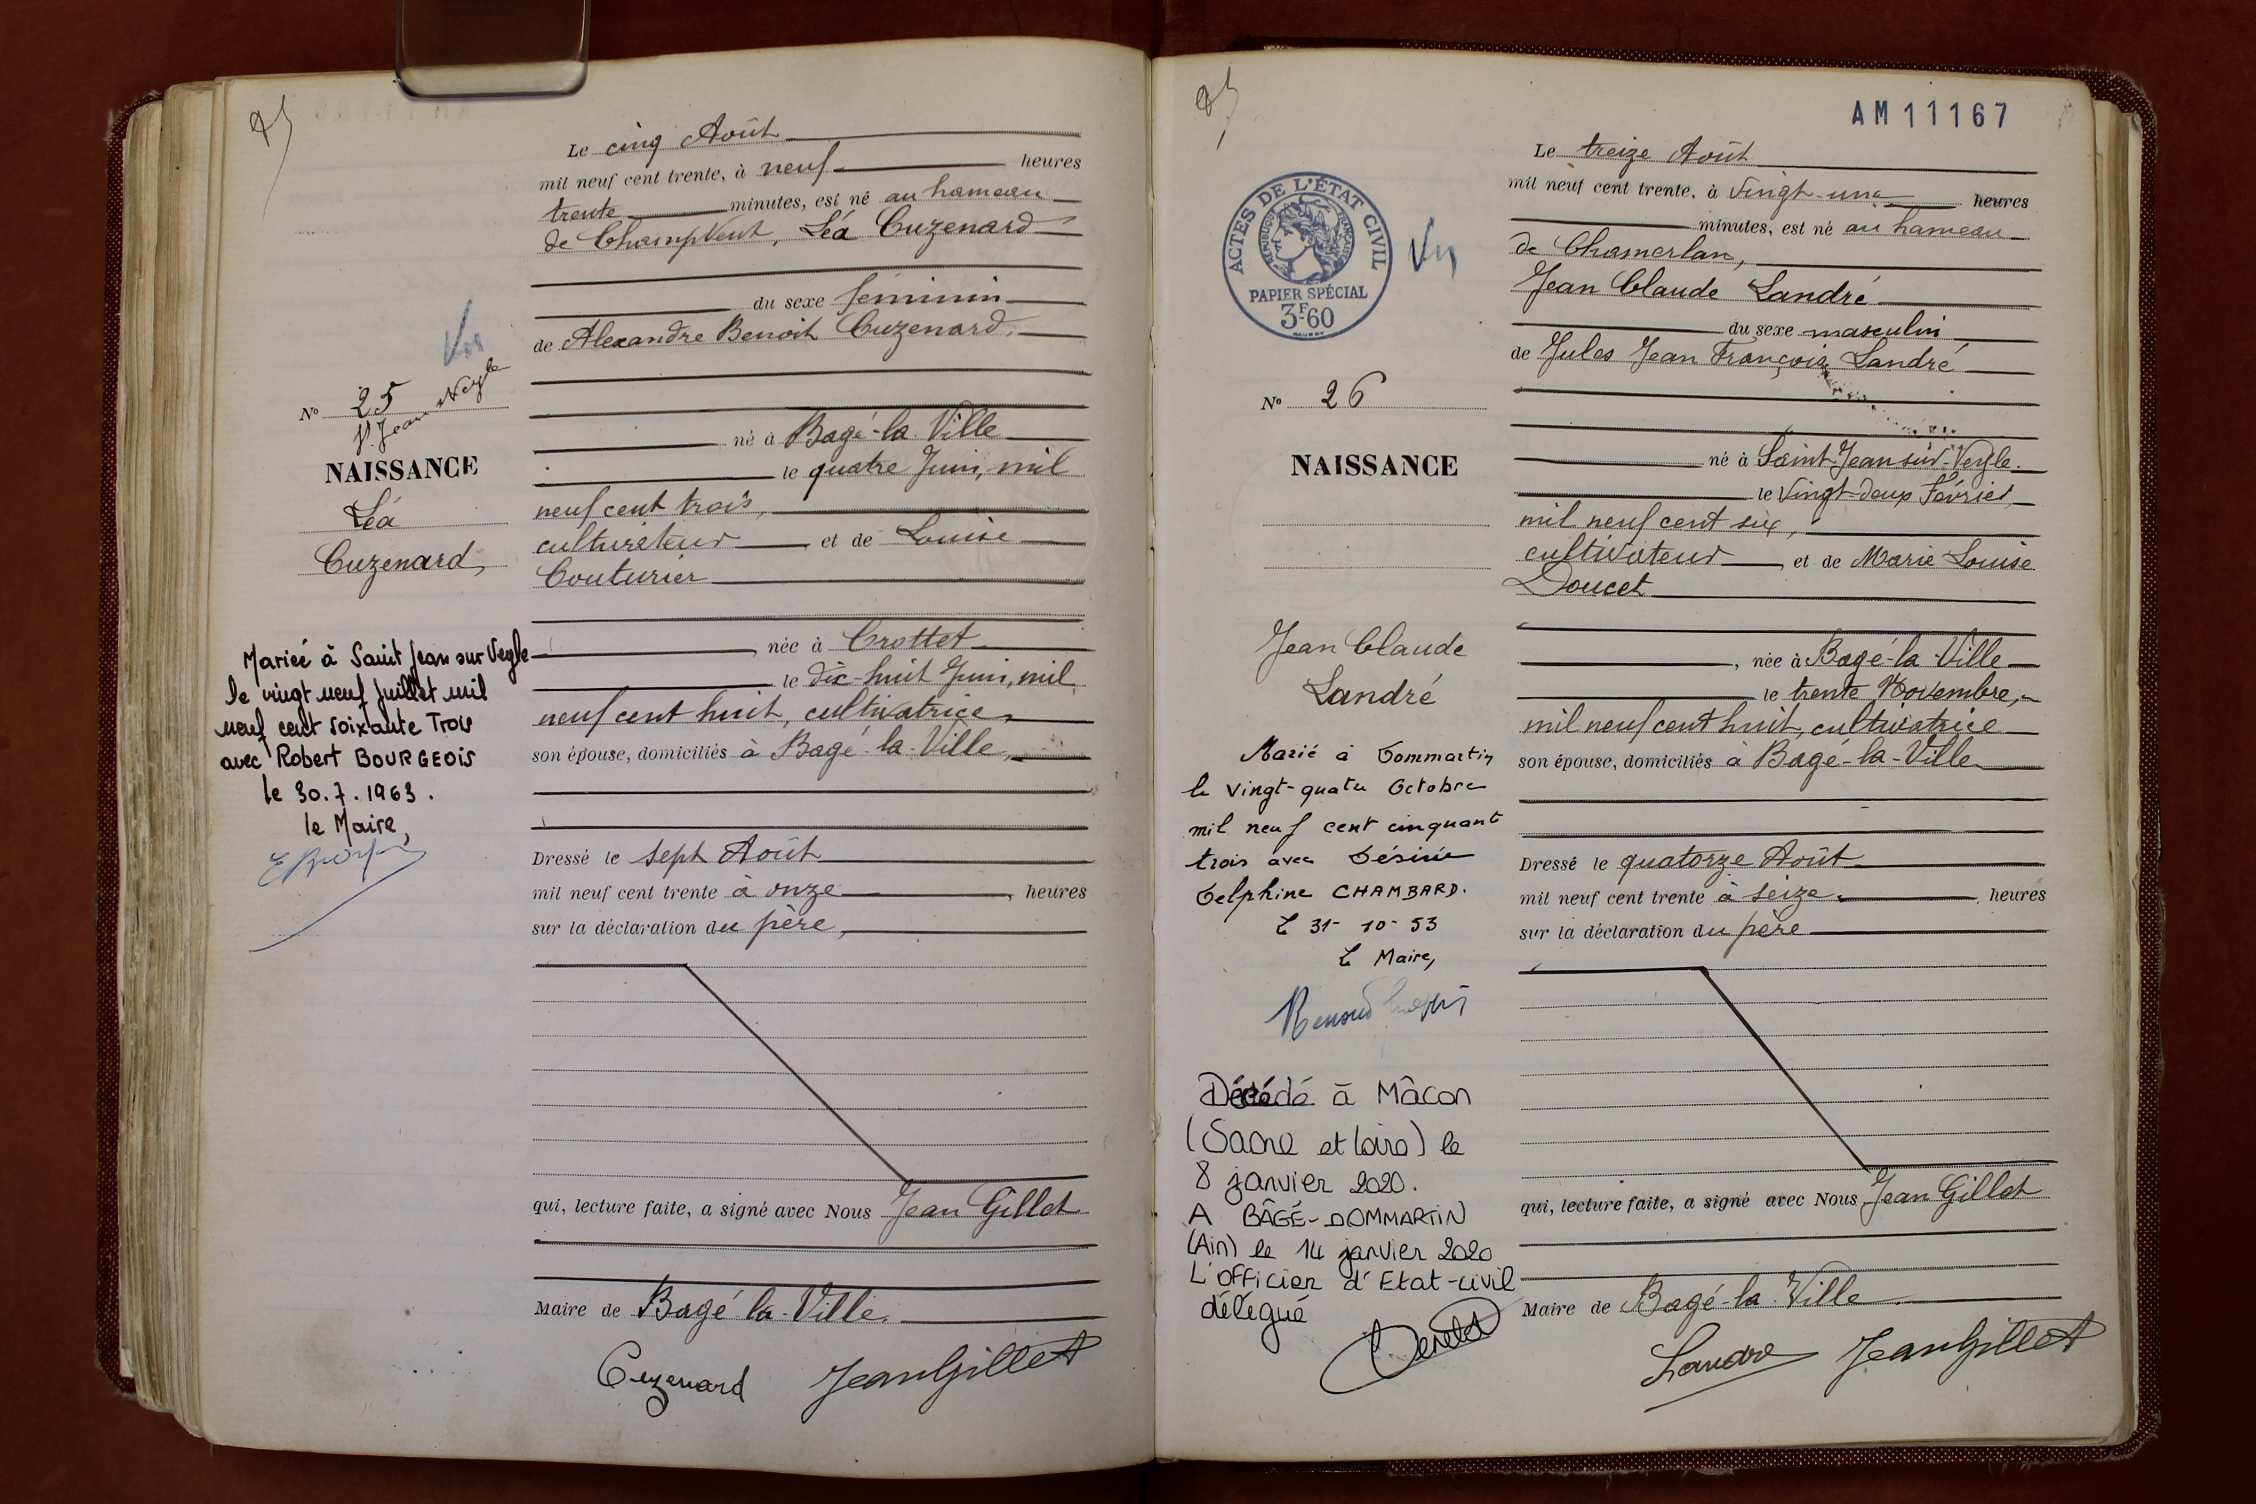 Le cinq Août
mil neuf cent trente, à neuf heures
trente minutes, est né au hameau
de Champvent, Léa Cuzenard
du sexe féminin
de Alexandre Benoit Cuzenard,
né à Bagé-la-Ville
le quatre Juin, mil
neuf cent trois,
cultivateur, et de Louise
Couturier
, née à Crottet
le dix-huit Juin, mil
neuf cent huit, cultivatrice,
son épouse, domiciliés à Bagé-la-Ville,
Dressé le sept Août
mil neuf cent trente à onze, heures
sur la déclaration du père,
qui, lecture faite, a signé avec Nous Jean Gillet
Maire de Bagé-la-Ville.
Cuzenard JeanGillet
Nº 25
St Jean s/Veyle
NAISSANCE
Léa
Cuzenard,
Mariée à Saint Jean sur Veyle
le vingt neuf juillet mil
neuf cent soixante Trois
avec Robert BOURGEOIS
le 30.7.1963.
le Maire,
AM11167
Le treize Août
mil neuf cent trente, à vingt-une heures
minutes, est né au hameau
de Chamerlan,
Jean Claude Landré
du sexe masculin
de Jules Jean François Landré
né à Saint-Jean-sur-Veyle.
le vingt-deux Février,
mil neuf cent six,
cultivateur, et de Marie Louise
Doucet
, née à Bagé-la-Ville
le trente Novembre,
mil neuf cent huit, cultivatrice
son épouse, domiciliés à Bagé-la-Ville
Dressé le quatorze Août
mil neuf cent trente à seize, heures
sur la déclaration du père
qui, lecture faite, a signé avec Nous Jean Gillet
Maire de Bagé-la-Ville.
Landré JeanGillet
ACTES DE L'ÉTAT CIVIL
RÉPUBLIQUE FRANÇAISE
PAPIER SPÉCIAL
3F60
Nº 26
NAISSANCE
Jean Claude
Landré
Marié à Dommartin
le vingt-quatre Octobre
mil neuf cent cinquante
trois avec Désirée
Delphine CHAMBARD.
le 31-10-53
le Maire,
Décédé à Mâcon
(Saône et Loire) le
8 janvier 2020.
A BÂGÉ-DOMMARTIN
(Ain) le 14 janvier 2020
L'officier d'Etat-civil
délégué